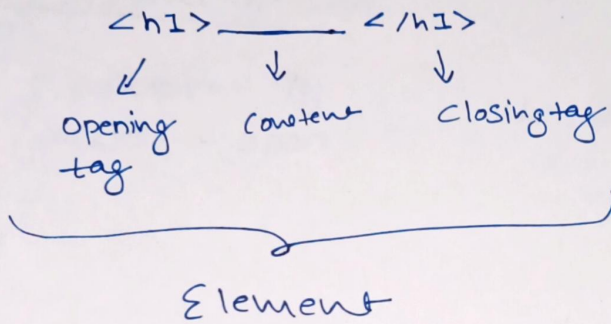 <h1>______</h1>
opening Content Closing tag
tag
Element